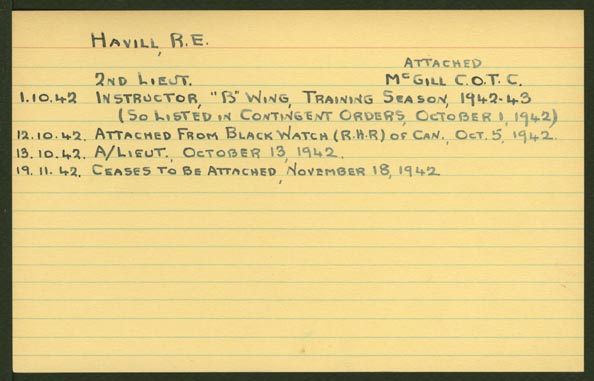 HAVILL, R.E.
ATTACHED
2ND LIEUT. McGILL C.O.T.C.
1.10.42 INSTRUCTOR, "B" WING, TRAINING SEASON, 1942-43
(SO LISTED IN CONTINGENT ORDERS, OCTOBER 1, 1942)
12.10.42. ATTACHED FROM BLACK WATCH (R.H.R) OF CAN., OCT. 5, 1942.
13.10.42. A/LIEUT., OCTOBER 13, 1942.
19.11.42. CEASES TO BE ATTACHED, NOVEMBER 18, 1942